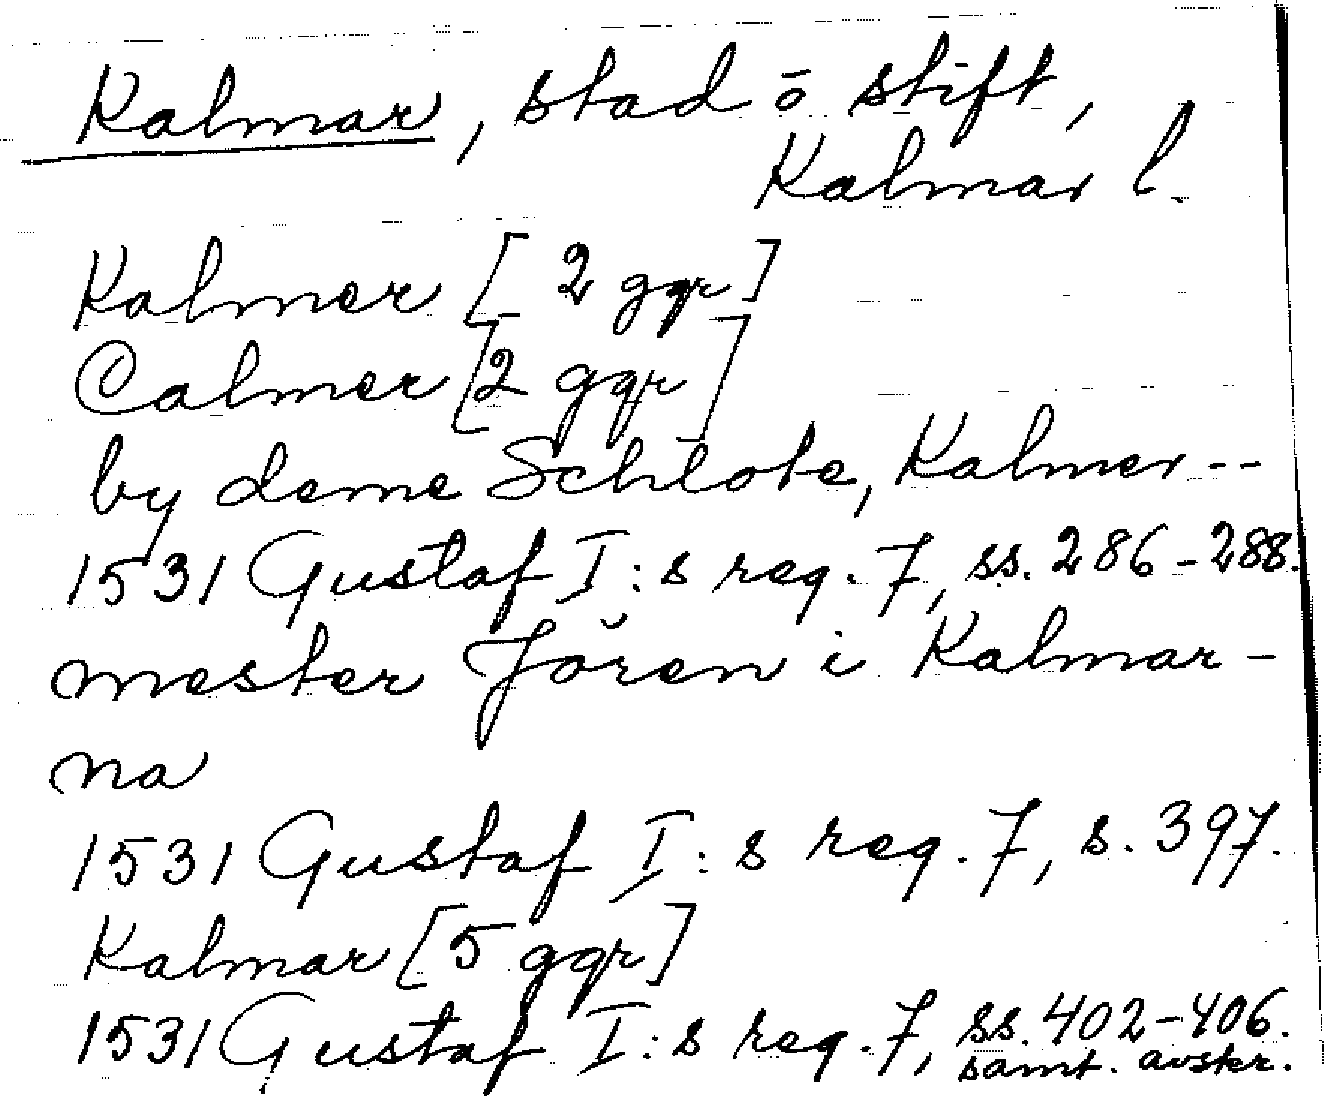 Kalmar, stad o stift,
Kalmar l.
Kalmer [2 ggr]
Calmer [2 ggr]
by deme Schlote, Kalmer --
1531 Gustaf I:s reg. 7, ss. 286-288.
mester Jören i Kalmar-
na
1531 Gustaf I:s reg. 7, s. 397.
Kalmar [5 ggr]
1531 Gustaf I:s reg. 7, ss. 402-406.
samt. avskr.